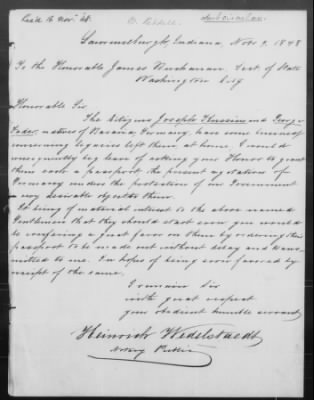 Rec'd 16 Nov. 48.
Lawrenceburgh, Indiana Nov. 9. 1848
To the Honorable James Buchanan, Sect. of State
Washington City
Honorable Sir
The citizens Joseph and George
natives of Bavaria, Germany, have some business
concerning legacies left them, at home, I would
consequently beg leave of asking your Honor to grant
them each a passport, the present agitations of
Germany makes the protection of our Government
very desirable for them.
It being of material interest to the above named
Gentlemen that they should start soon you would
be confering a great favor on them by ordering their
passport to be made out without delay and trans-
mitted to me. In hopes of being soon favored by
receipt of the same.
I remain Sir
with great respect
your obedient humble servant
Heinrich Wedelstaedt
Notary Public